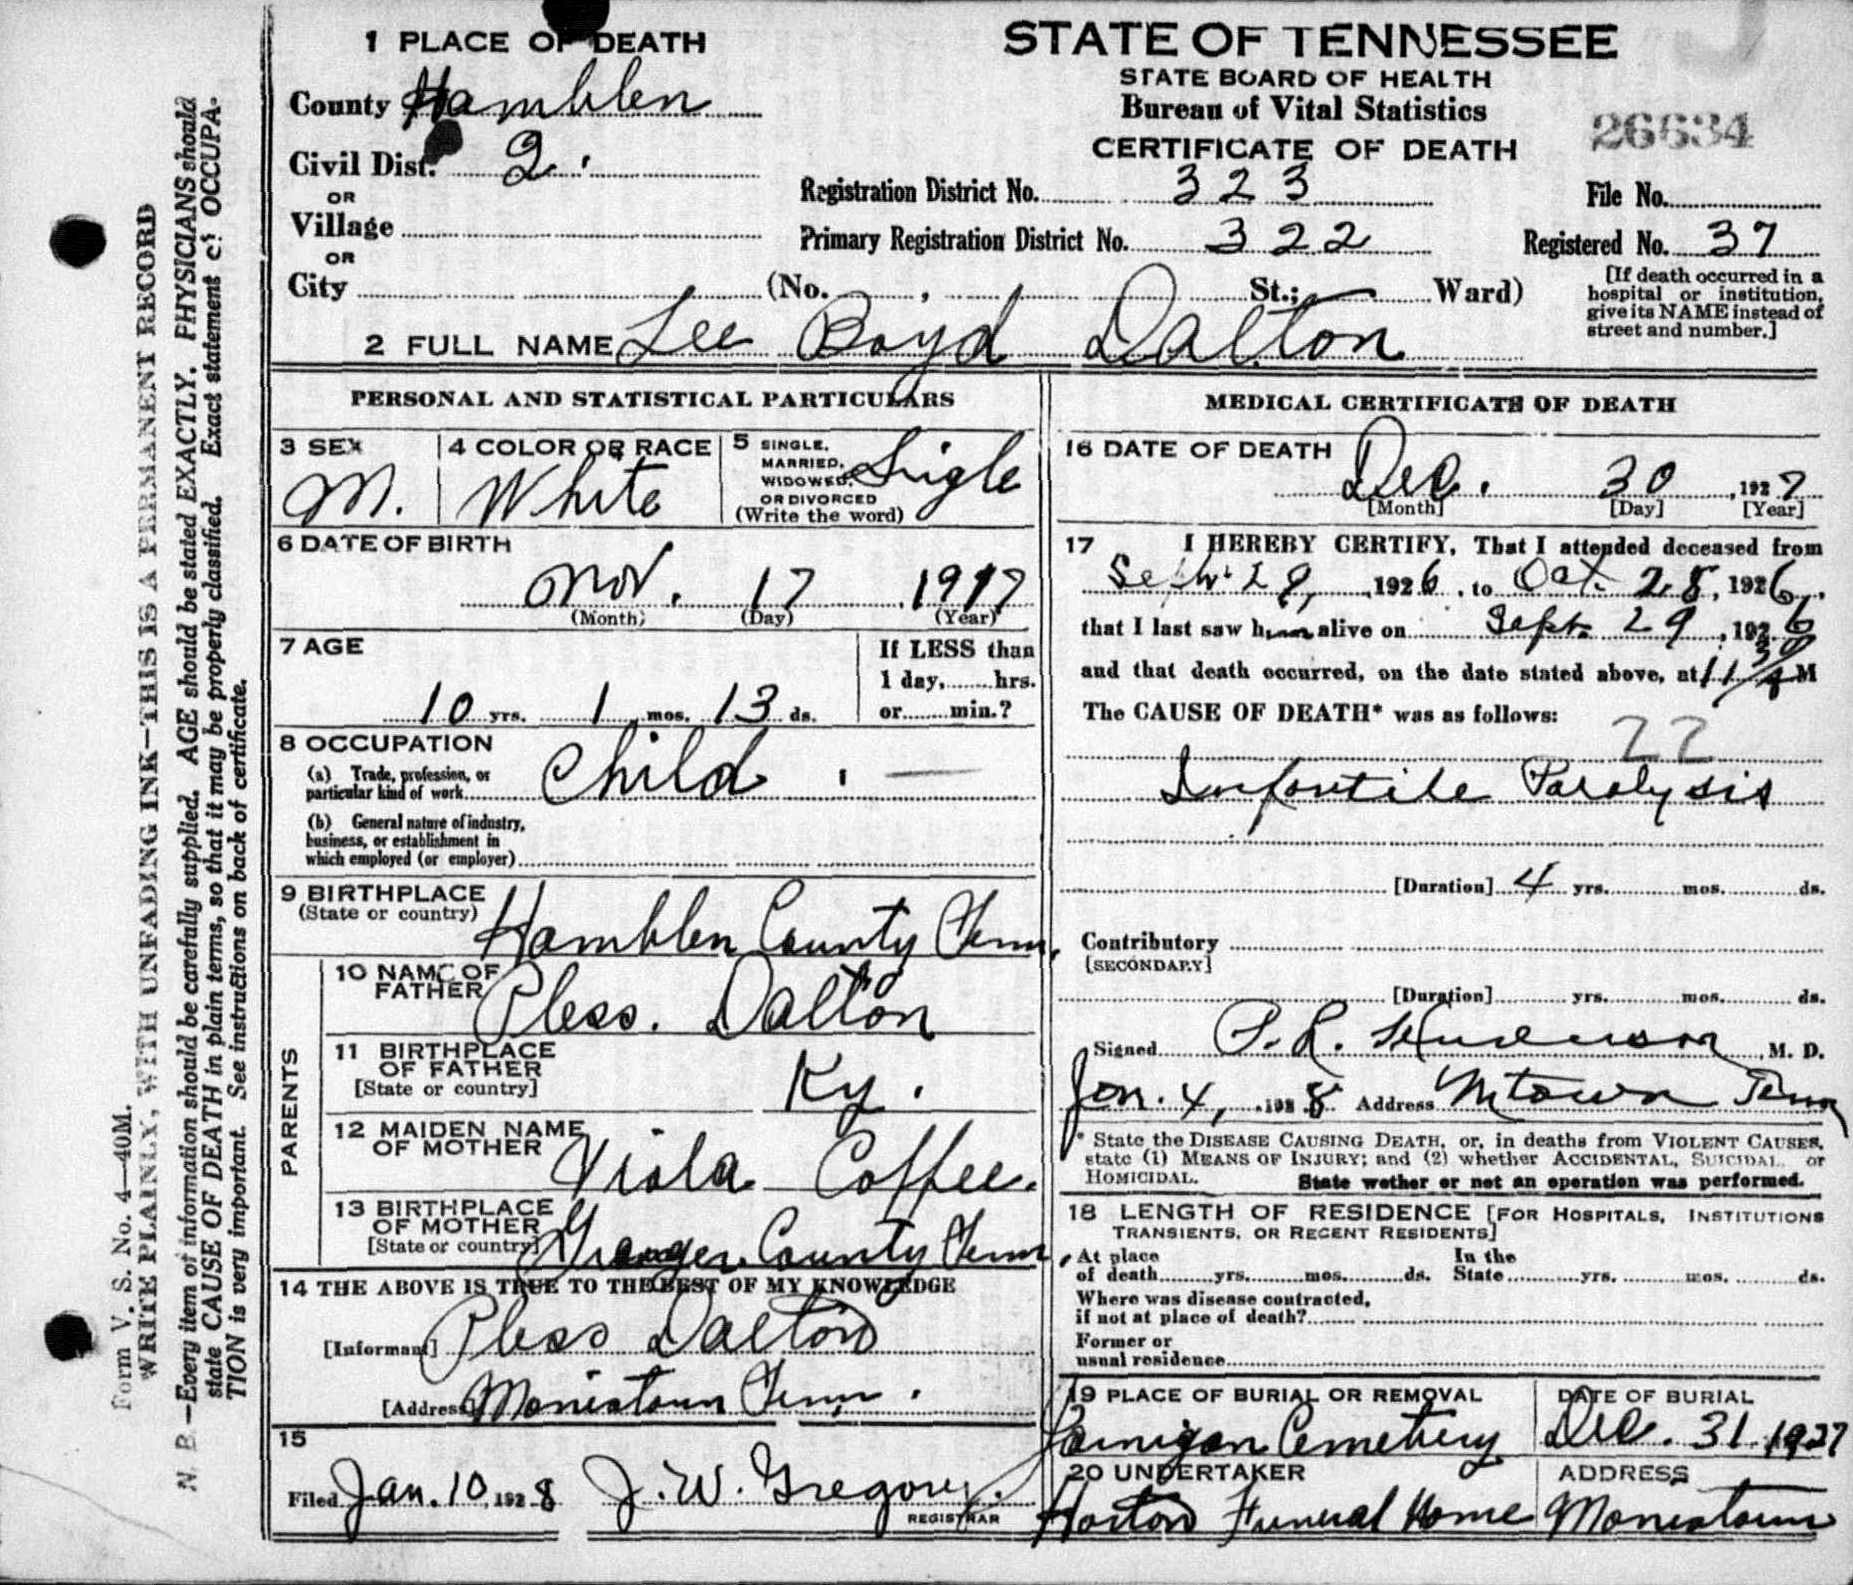 1 PLACE OF DEATH
County Hamblen
Civil Dist. 2.
OR
Village
OR
City (No. , St.; Ward)
STATE OF TENNESSEE
STATE BOARD OF HEALTH
Bureau of Vital Statistics
CERTIFICATE OF DEATH
26634
Registration District No. 323
File No.
Primary Registration District No. 322
Registered No. 37
[If death occurred in a
hospital or institution,
give its NAME instead of
street and number.]
2 FULL NAME Lee Boyd Dalton
PERSONAL AND STATISTICAL PARTICULARS
3 SEX
M.
4 COLOR OR RACE
White
5 SINGLE,
MARRIED,
WIDOWED,
OR DIVORCED
(Write the word)
Sigle
6 DATE OF BIRTH
Nov. 17 1917
(Month) (Day) (Year)
7 AGE
10 yrs. 1 mos. 13 ds.
If LESS than
1 day, hrs.
or min.?
8 OCCUPATION
(a) Trade, profession, or
particular kind of work Child
(b) General nature of industry,
business, or establishment in
which employed (or employer)
9 BIRTHPLACE
(State or country) Hamblen County Tenn.
PARENTS
10 NAME OF
FATHER Pless. Dalton
11 BIRTHPLACE
OF FATHER
[State or country] Ky.
12 MAIDEN NAME
OF MOTHER Viola Coffee.
13 BIRTHPLACE
OF MOTHER
[State or country] Grainger County Tenn.
14 THE ABOVE IS TRUE TO THE BEST OF MY KNOWLEDGE
[Informant] Pless Dalton
[Address] Morristown Tenn.
15
Filed Jan. 10, 1928 J. W. Gregory.
REGISTRAR
MEDICAL CERTIFICATE OF DEATH
16 DATE OF DEATH
Dec. 30, 1927
[Month] [Day] [Year]
17 I HEREBY CERTIFY, That I attended deceased from
Sept. 29, 1926, to Oct. 28, 1926,
that I last saw him alive on Sept. 29, 1926
and that death occurred, on the date stated above, at 11 M
The CAUSE OF DEATH* was as follows:
22
Infantile Paralysis
[Duration] 4 yrs. mos. ds.
Contributory
[SECONDARY]
[Duration] yrs. mos. ds.
Signed P. R. Henderson, M. D.
Jan. 4, 1928 Address Mtown Tenn
* State the DISEASE CAUSING DEATH, or, in deaths from VIOLENT CAUSES,
state (1) MEANS OF INJURY; and (2) whether ACCIDENTAL, SUICIDAL, or
HOMICIDAL. State wether or not an operation was performed.
18 LENGTH OF RESIDENCE [FOR HOSPITALS, INSTITUTIONS
TRANSIENTS, OR RECENT RESIDENTS]
At place In the
of death yrs. mos. ds. State yrs. mos. ds.
Where was disease contracted,
if not at place of death?
Former or
usual residence
19 PLACE OF BURIAL OR REMOVAL
Jarnigan Cemetery
DATE OF BURIAL
Dec. 31, 1927
20 UNDERTAKER
Horton Funeral Home
ADDRESS
Morristown
Form V. S. No. 4—40M.
WRITE PLAINLY, WITH UNFADING INK—THIS IS A PERMANENT RECORD
N. B.—Every item of information should be carefully supplied. AGE should be stated EXACTLY. PHYSICIANS should
state CAUSE OF DEATH in plain terms, so that it may be properly classified. Exact statement of OCCUPA-
TION is very important. See instructions on back of certificate.